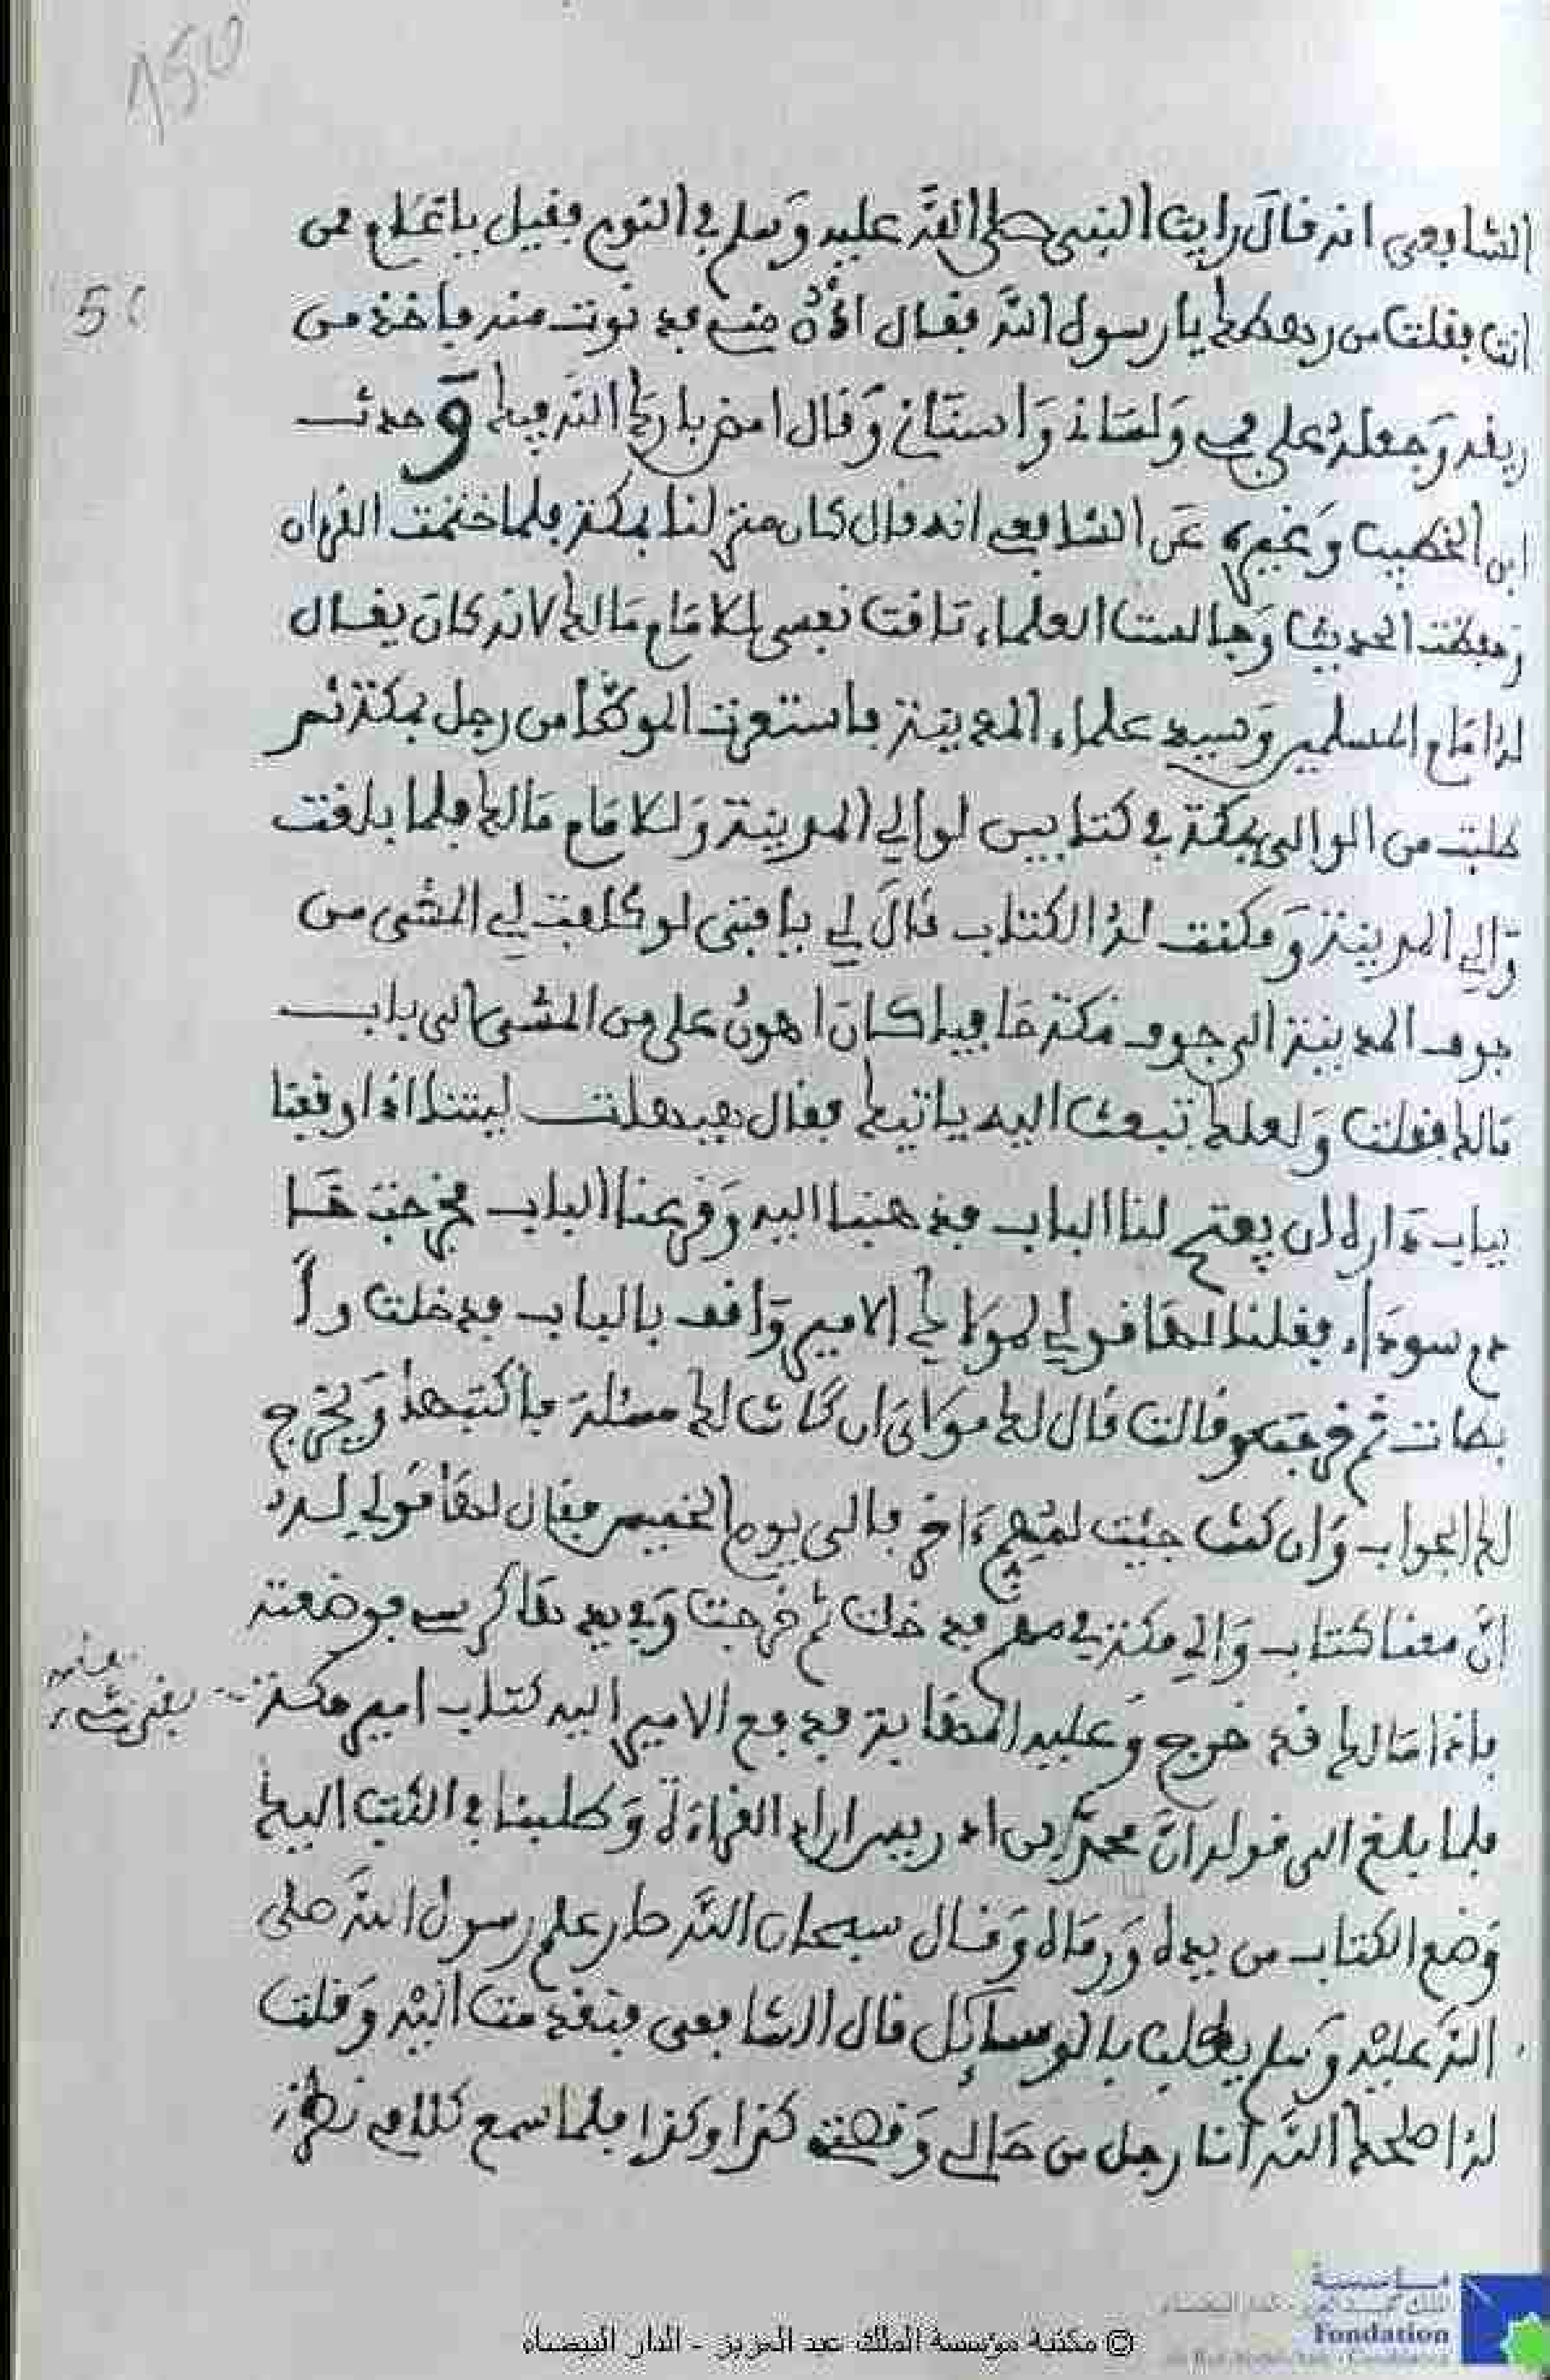 150
الشافعي انه قال رايت النبي صلى الله عليه وسلم في النوم فقيل يا غلام من
50
انت فقلت من رهطك يا رسول الله فقال ادن مني فدنوت منه فاخذ من
ريقه وجعله على فمي ولساني واسناني وقال امض بارك الله فيك وحدث
ابن الخطيب وغيره عن الشافعي انه قال كان منزلنا بمكة فلما ختمت القرءان
وحفظت الحديث وجالست العلماء تاقت نفسي للامام مالك لانه كان يقال
له امام المسلمين وسيد علماء المدينة فاستعرت الموطأ من رجل بمكة ثم
طلبت من الوالي بمكة في كتابين لوالي المدينة وللامام مالك فلما بلغت
والي المدينة ومكنت له الكتاب قال لي يا فتى لو كلفت لي المشي من
جوف المدينة الى جوف مكة حافيا كان اهون علي من المشي الى باب
مالك فقلت ولعلك تبعث اليه ياتيك فقال هيهات ليتنا اذا وقفنا
بباب داره ان يفتح لنا الباب فذهبنا اليه وقرعنا الباب فخرجت خـا
دم سوداء فقلنا لها قولي لمولاك الامير واقف بالباب فدخلت وا
بطات ثم خرجت وقالت قال لك مولاي ان كانت لك مسئلة فاكتبها ويخرج
لك الجواب وان كنت جيت لشيء ءاخر فالى يوم الخميس فقال لها قولي له
ان معنا كتاب والي مكة في مهم فدخلت ثم خرجت وفي يدها كرسي فوضعته
فاذا مالك قد خرج وعليه المهابة فدفع الامير اليه كتاب امير مكة
فلما بلغ الى قوله ان محمد بن ادريس اراد القراءة وطلبنا في الكتب اليك
وضع الكتاب من يده ورماه وقال سبحان الله صار علم رسول الله صلى
الله عليه وسلم يطلب بالوسائل قال الشافعي فتقدمت اليه وقلت
له اصلحك الله انا رجل من حالي وقصتي كذا وكذا فلما سمع كلامي نظر
مؤسسة
Fondation
© مكتبة مؤسسة الملك عبد العزيز - الدار البيضاء